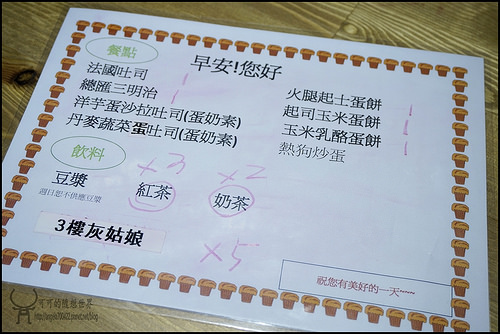 早安!您好
餐點
法國吐司
總匯三明治 1
洋芋蛋沙拉吐司(蛋奶素) 1
丹麥蔬菜蛋吐司(蛋奶素)
火腿起士蛋餅
起司玉米蛋餅 1
玉米乳酪蛋餅 1
熱狗炒蛋 1
飲料
豆漿
週日恕不供應豆漿
紅茶 x3
奶茶 x2
3樓灰姑娘
x5
祝您有美好的一天~~~
可可的隨想世界